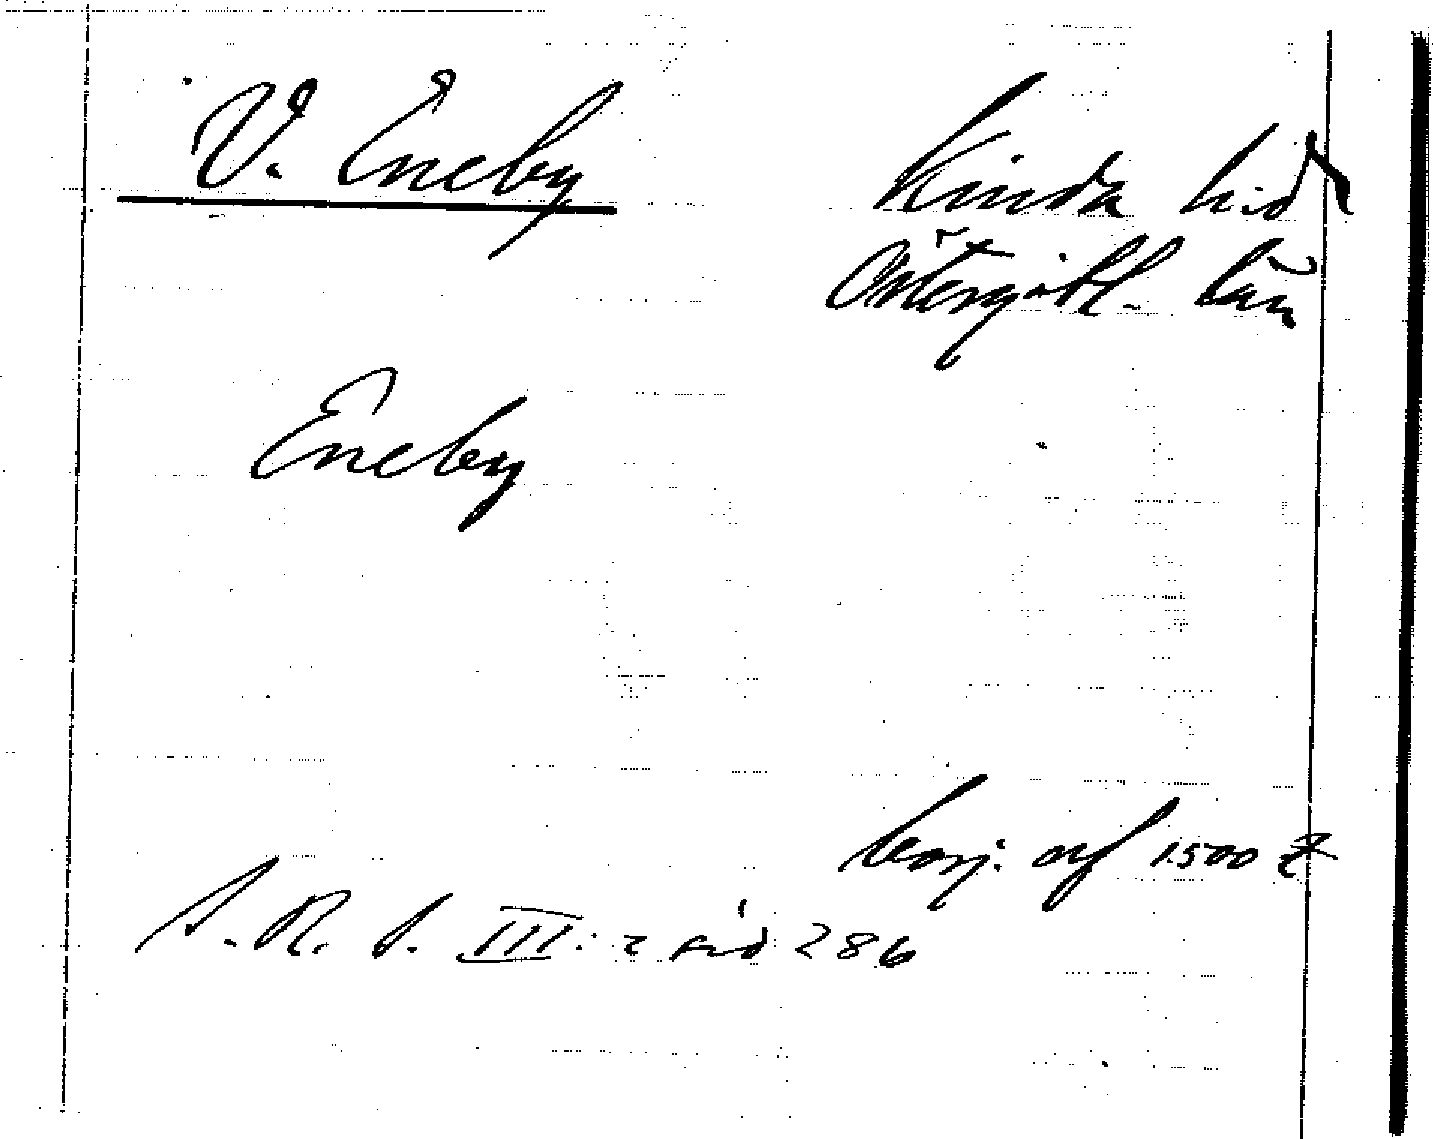 V. Eneby
Kinda hd
Östergötl. län
Eneby
börj. af 1500 t
S. R. S. III: 2 sid 286